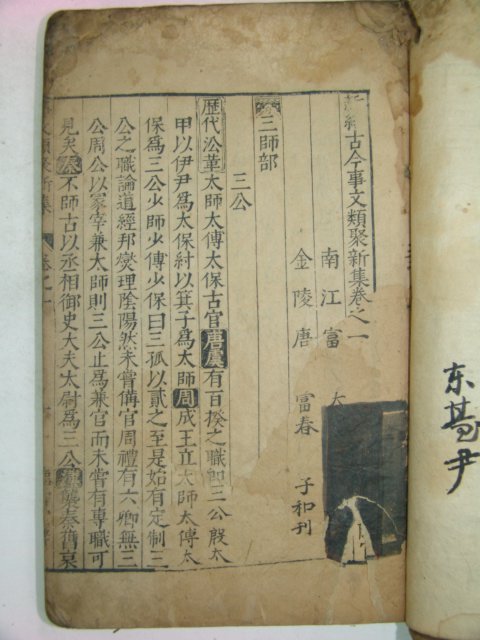 新編古今事文類聚新集卷之一
南江富大
金陵唐富春子和刊
三師部
三公
歷代沿革太師太傅太保古官唐虞有百揆之職即三公殷太
甲以伊尹爲太保紂以箕子爲太師周成王立太師太傅太
保爲三公少師少傅少保曰三孤以貳之至是始有定制三
公之職論道經邦燮理陰陽然未嘗備官周禮有六卿無三
公周公以冢宰兼太師則三公止爲兼官而未嘗有專職可
見矣秦不師古以丞相御史大夫太尉爲三公漢襲秦舊哀
文類聚新集 卷之一
東萬尹